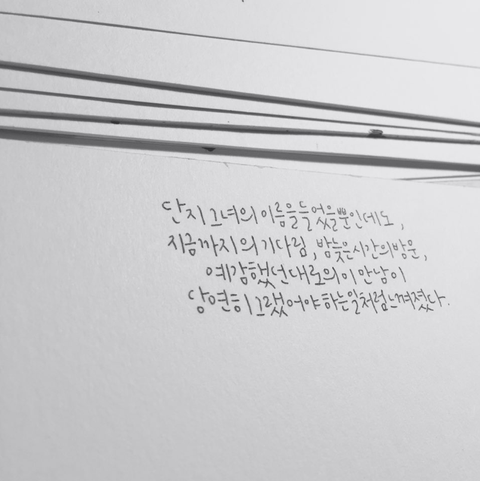 단지 그녀의 이름을 들었을 뿐인데도,
지금까지의 기다림, 밤늦은 시간의 방문,
예감했던 대로의 이 만남이
당연히 그랬어야 하는 일처럼 느껴졌다.